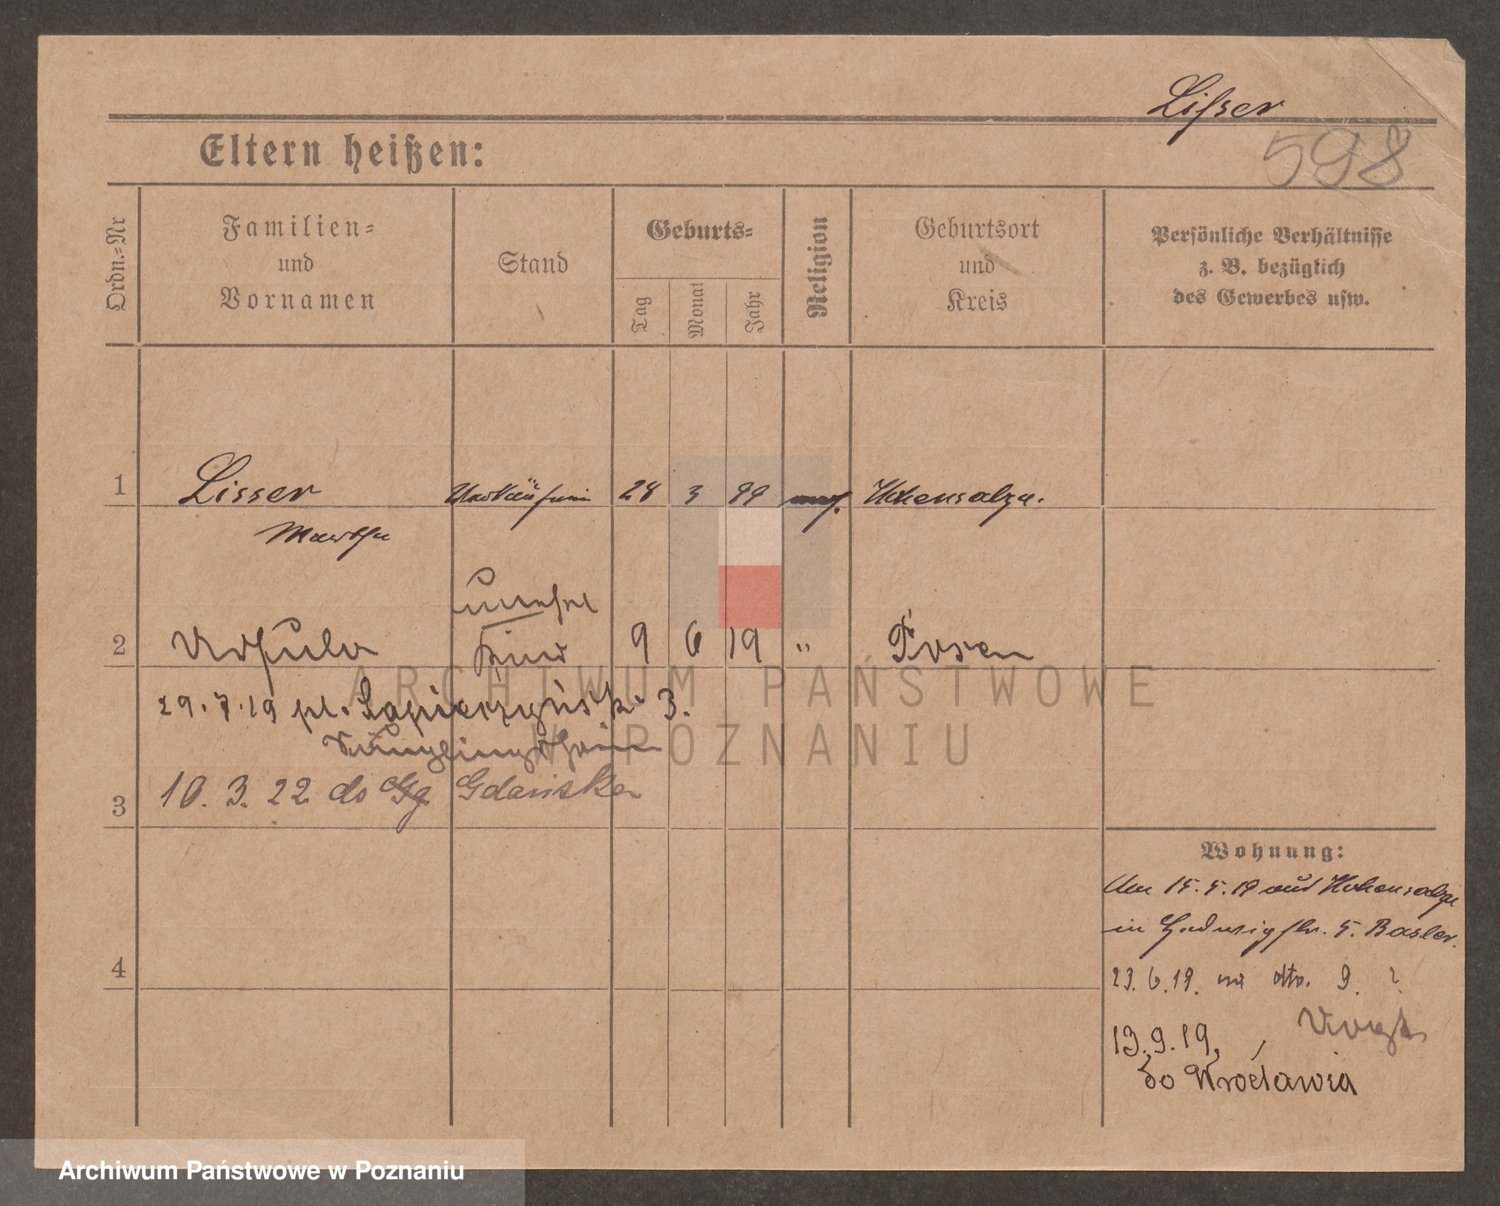 Lißer
598
Eltern heißen:
Ordn.=Nr
Familien=
und
Vornamen
Stand
Geburts=
Tag
Monat
Jahr
Religion
Geburtsort
und
Kreis
Persönliche Verhältnisse
z. B. bezüglich
des Gewerbes usw.
1 Lisser Verkäuferin 28 3 99 Hohensalza.
Martha
unehel
2 Ursula Kind 9 6 19 " Posen
29.7.19 pl. Sapieżyńsk. 3.
Säuglingsheim
3 10. 3. 22 do Gdańska
4
Wohnung:
Am 15.5.19 aus Hohensalza
in Hedwigstr. 5. Basler.
23.6.19. na dto. 9.
Vogt
13.9.19,
do Wrocławia
ARCHIWUM PAŃSTWOWE
W POZNANIU
Archiwum Państwowe w Poznaniu